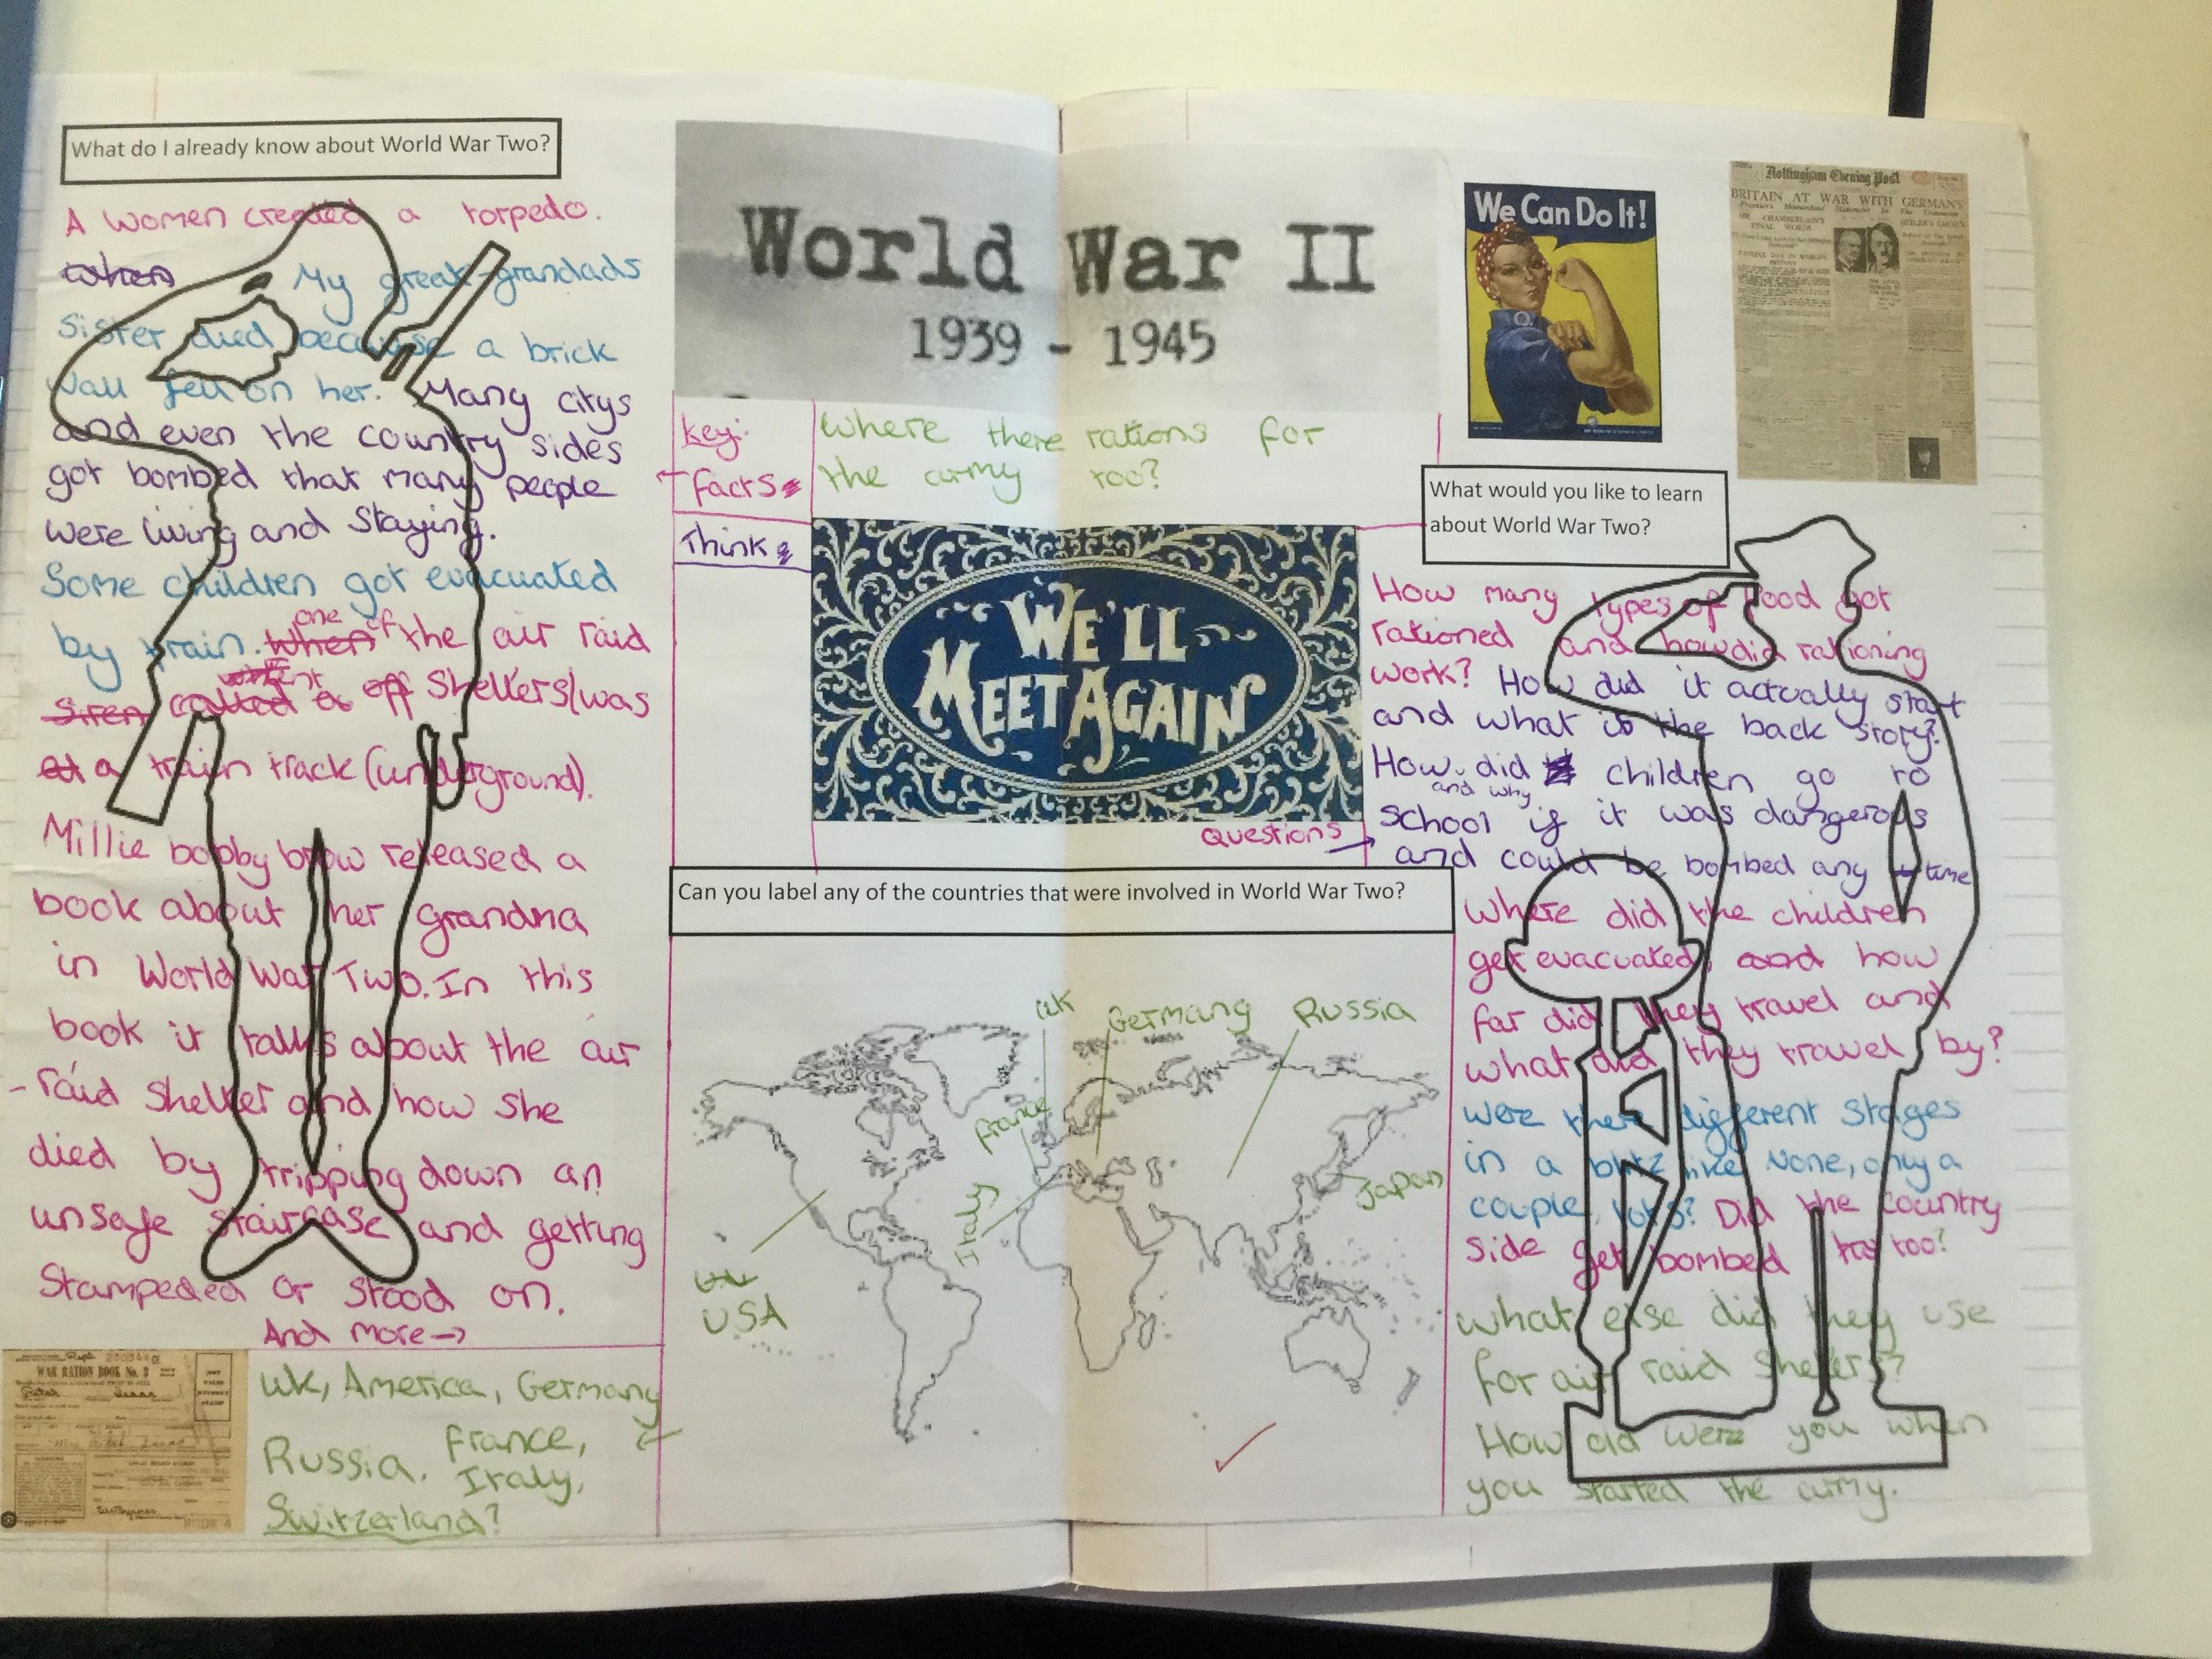 What do I already know about World War Two?
A women created a torpedo.
when My great-grandads
sister died because a brick
wall fell on her. Many citys
and even the country sides
got bombed that many people
were living and staying.
Some children got evacuated
by train. when one of the air raid
siren called a off shelters/was
at a train track (underground).
Millie bobby brow released a
book about her grandma
in World War Two. In this
book it talks about the air
-raid shelter and how she
died by tripping down an
unsafe staircase and getting
stampeded or stood on.
And more→
WAR RATION BOOK No. 3
UK, America, Germany
Russia, France,
Italy,
Switzerland?
World War II
1939 - 1945
Key:
facts
Think
Where there rations for
the army too?
WE'LL
MEET AGAIN
Questions
Can you label any of the countries that were involved in World War Two?
UK
Germany
Russia
France
Italy
Japan
USA
We Can Do It!
Nottingham Evening Post
BRITAIN AT WAR WITH GERMANY
MR. CHAMBERLAIN'S
FINAL WORDS
What would you like to learn
about World War Two?
How many types of food got
rationed and how did rationing
work? How did it actually start
and what is the back story?
How did children go to
and why
school if it was dangerous
and could be bombed any time
Where did the children
get evacuated, and how
far did they travel and
what did they travel by?
were there different stages
in a blitz like None, only a
couple, lots? Did the country
side get bombed too?
what else did they use
for air raid shelters?
How old were you when
you started the army.